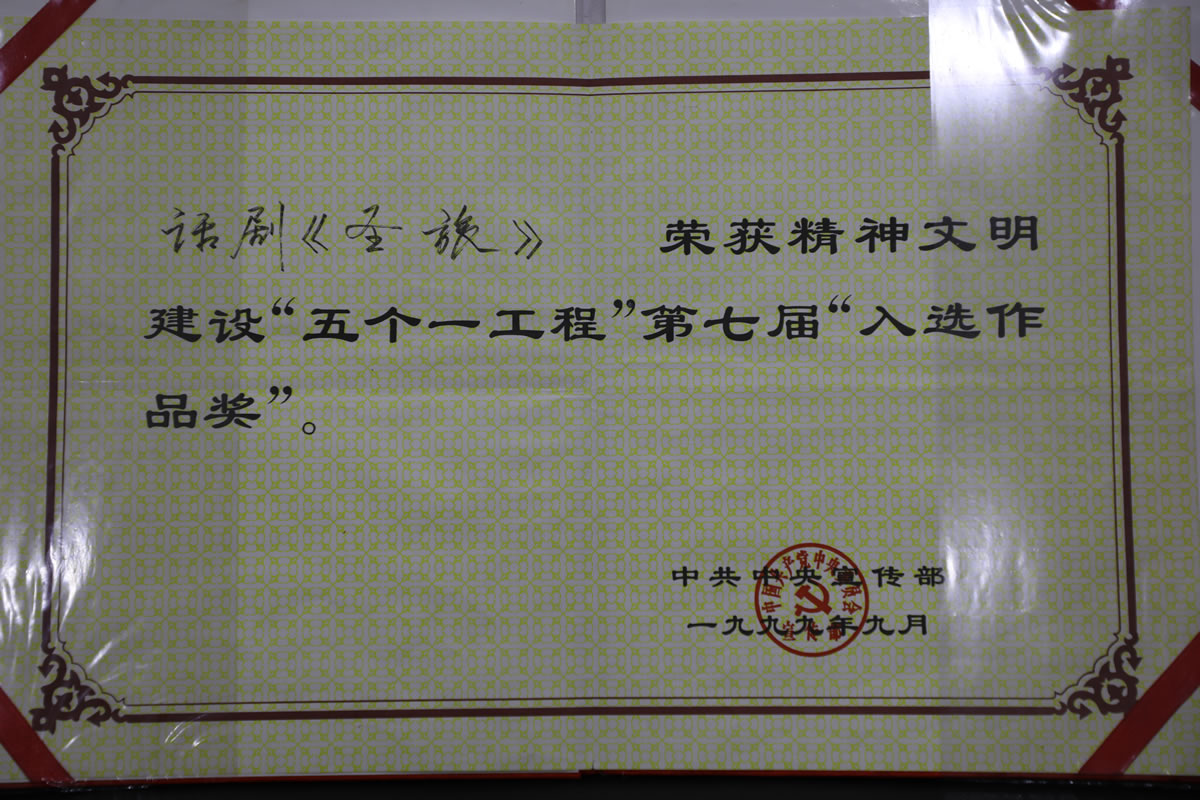 话剧《圣旅》 荣获精神文明
建设“五个一工程”第七届“入选作
品奖”。
中共中央宣传部
一九九九年九月
中国共产党中央委员会
宣传部